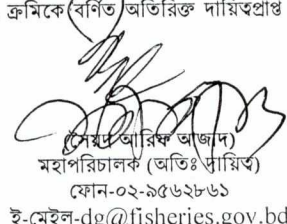 ক্রমিকে বর্ণিত অতিরিক্ত দায়িত্বপ্রাপ্ত
(সৈয়দ আরিফ আজাদ)
মহাপরিচালক (অতিঃ দায়িত্ব)
ফোন-০২-৯৫৬২৮৬১
ই-মেইল-dg@fisheries.gov.bd